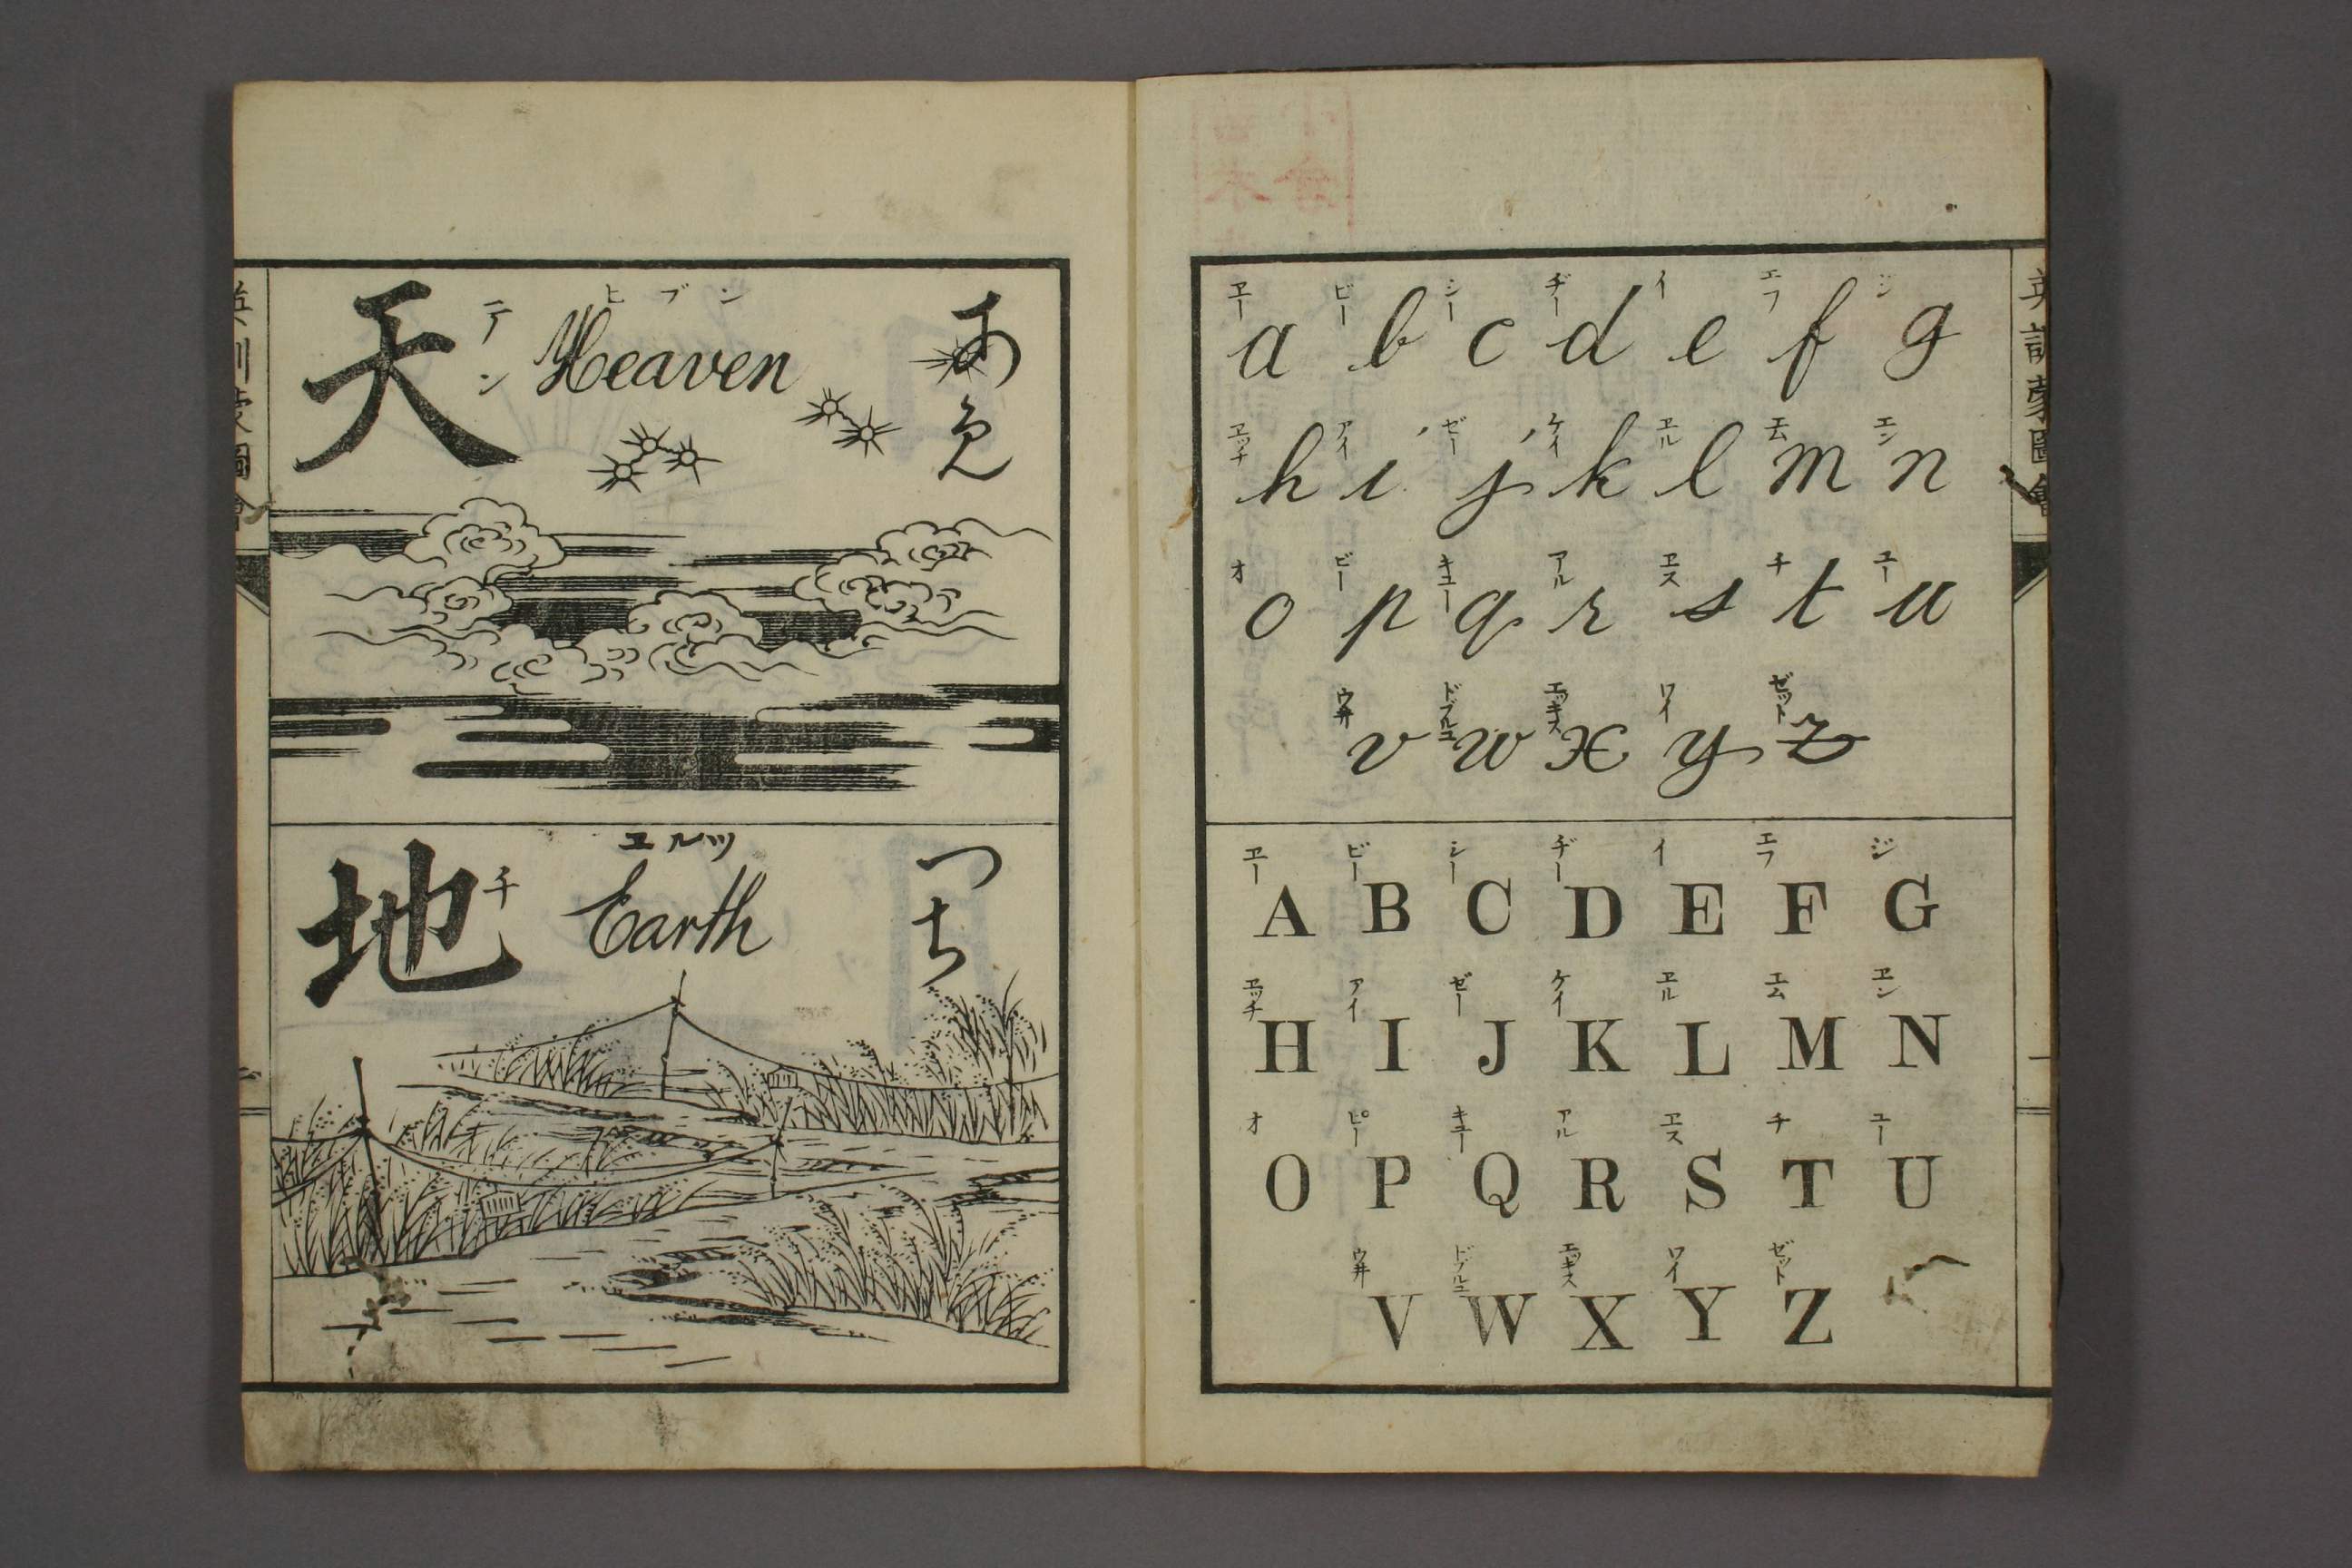 英訓蒙圖會
ヱー ビー シー ヂー イ エフ ジ
a b c d e f g
ヱッチ アイ ゼー ケイ ヱル エム エン
h i j k l m n
オ ビー キユー アル ヱス チ ユー
o p q r s t u
ウ井 ドブルユ エッキス ワイ ゼット
v w x y z
ヱー ビー シー ヂー イ エフ ジ
A B C D E F G
ヱッチ アイ ゼー ケイ ヱル エム ヱン
H I J K L M N
オ ピー キユー アル ヱス チ ユー
O P Q R S T U
ウ井 ドブルユ エッキス ワイ ゼット
V W X Y Z
あめ
ヒブン
Heaven
テン
天
つち
ヱルツ
Earth
チ
地